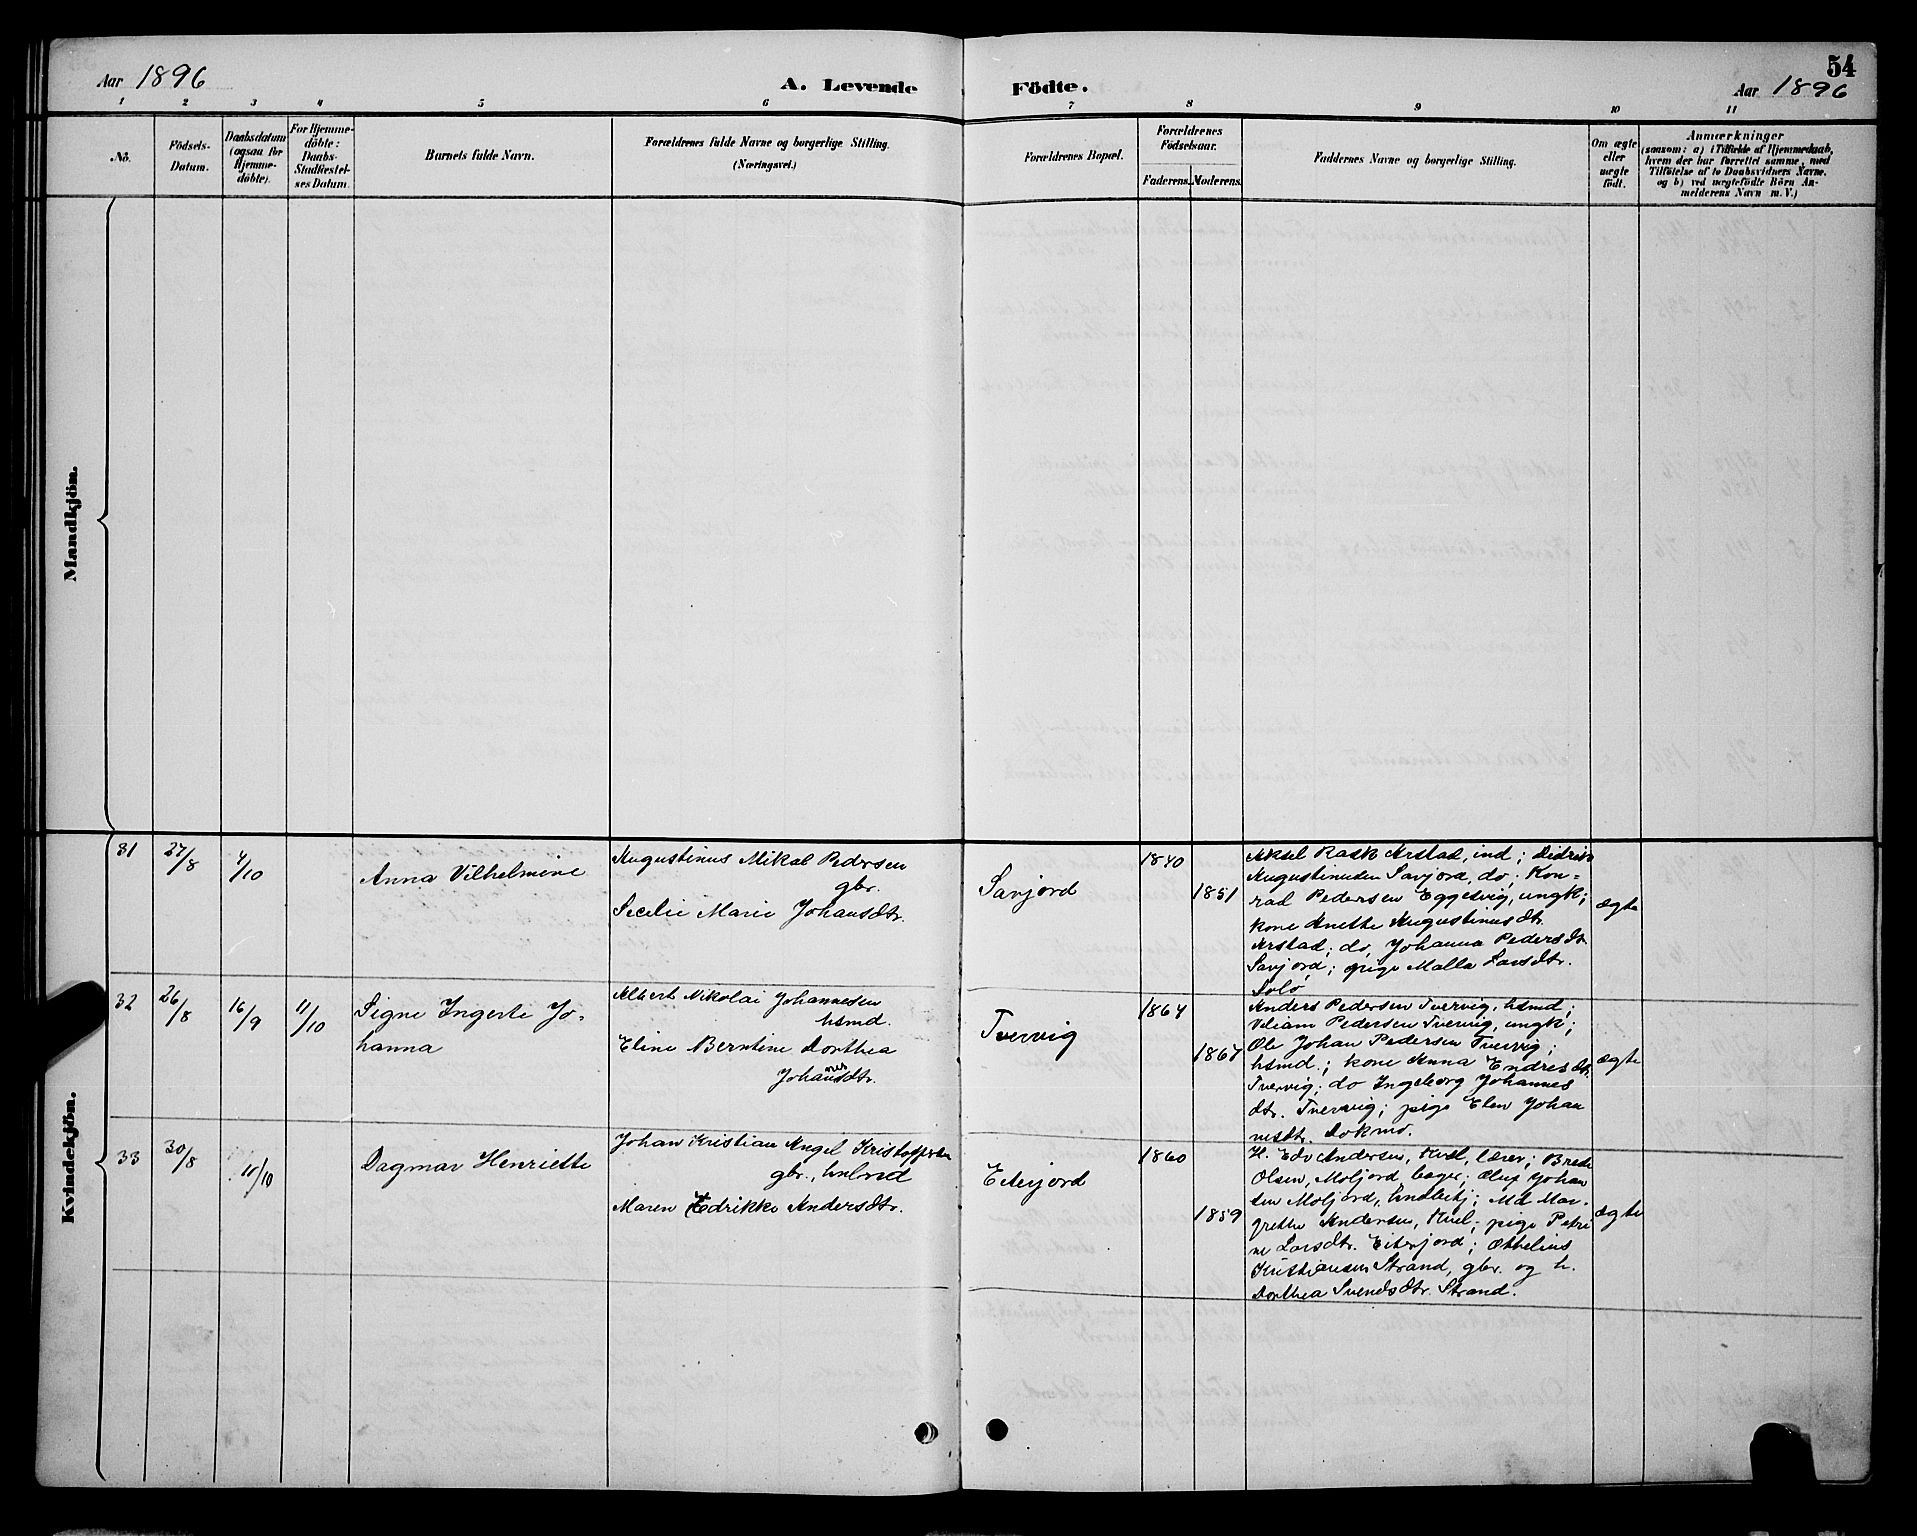 54
Aar 1896
A. Levende
Födte.
Aar 1896
1 2 3 4 5 6 7 8 9 10 11
No.
Födsels-
Datum.
Daabsdatum
(ogsaa for
Hjemme-
döbte).
For Hjemme-
döbte:
Daabs-
Stadfestel-
ses Datum.
Barnets fulde Navn.
Forældrenes fulde Navne og borgerlige Stilling.
(Næringsvei.)
Forældrenes Bopæl.
Forældrenes
Födselsaar.
Faderens. Moderens.
Faddernes Navne og borgerlige Stilling.
Om ægte
eller
uægte
födt.
Anmærkninger
(saasom: a) i Tilfælde af Hjemmedaab,
hvem der har forrettet samme, med
Tilföielse af to Daabsvidners Navne.
og b) ved uægtefödte Börn An-
melderens Navn m. V.)
Mandkjön.
Kvindekjön.
31
27/8
4/10
Anna Vilhelmine
Augustinus Mikal Pedersen
gbr.
Secelie Marie Johansdtr.
Savjord
1840
1851
Aksel Rask Arstad, ind; Didrik
Augustinusen Savjord, do; Kon-
rad Pedersen Eggesvig, ungk;
kone Anette Augustinusdtr.
Arstad; do, Johanna Pedersdtr.
Savjord; pige Malla Larsdtr.
Solø
ægte
32
26/8
16/9
11/10
Signe Ingerte Jo-
hanna
Albert Nikolai Johannesen
hsmd.
Eline Berntine Dorthea
Johansdtr.
Tvervig
1864
1867
Anders Pedersen Tvervig, hsmd;
Viliam Pedersen Tvervig, ungk;
Ole Johan Pedersen Tvervig;
hsmd.; kone Anna Endresdtr.
Tvervig; do Ingeborg Johannes
dtr. Tvervig; pige Elen Johan
nesdtr. Dokmo.
ægte
33
30/8
11/10
Dagmar Henriette
Johan Kristian Angel Kristoffersen
gbr.,
Maren Edrikke Andersdtr.
Eiterjord
1860
1859
H. Edv Andersen, lærer; Brede
Olsen, Moljord, bager; Oluf Johan
sen Moljord, Md Mar-
grethe Andersen, pige Petri
ne Larsdtr. Eiterjord; Othelius
Kristiansen Strand, gbr. og h.
Dorthea Svendsdtr. Strand.
ægte